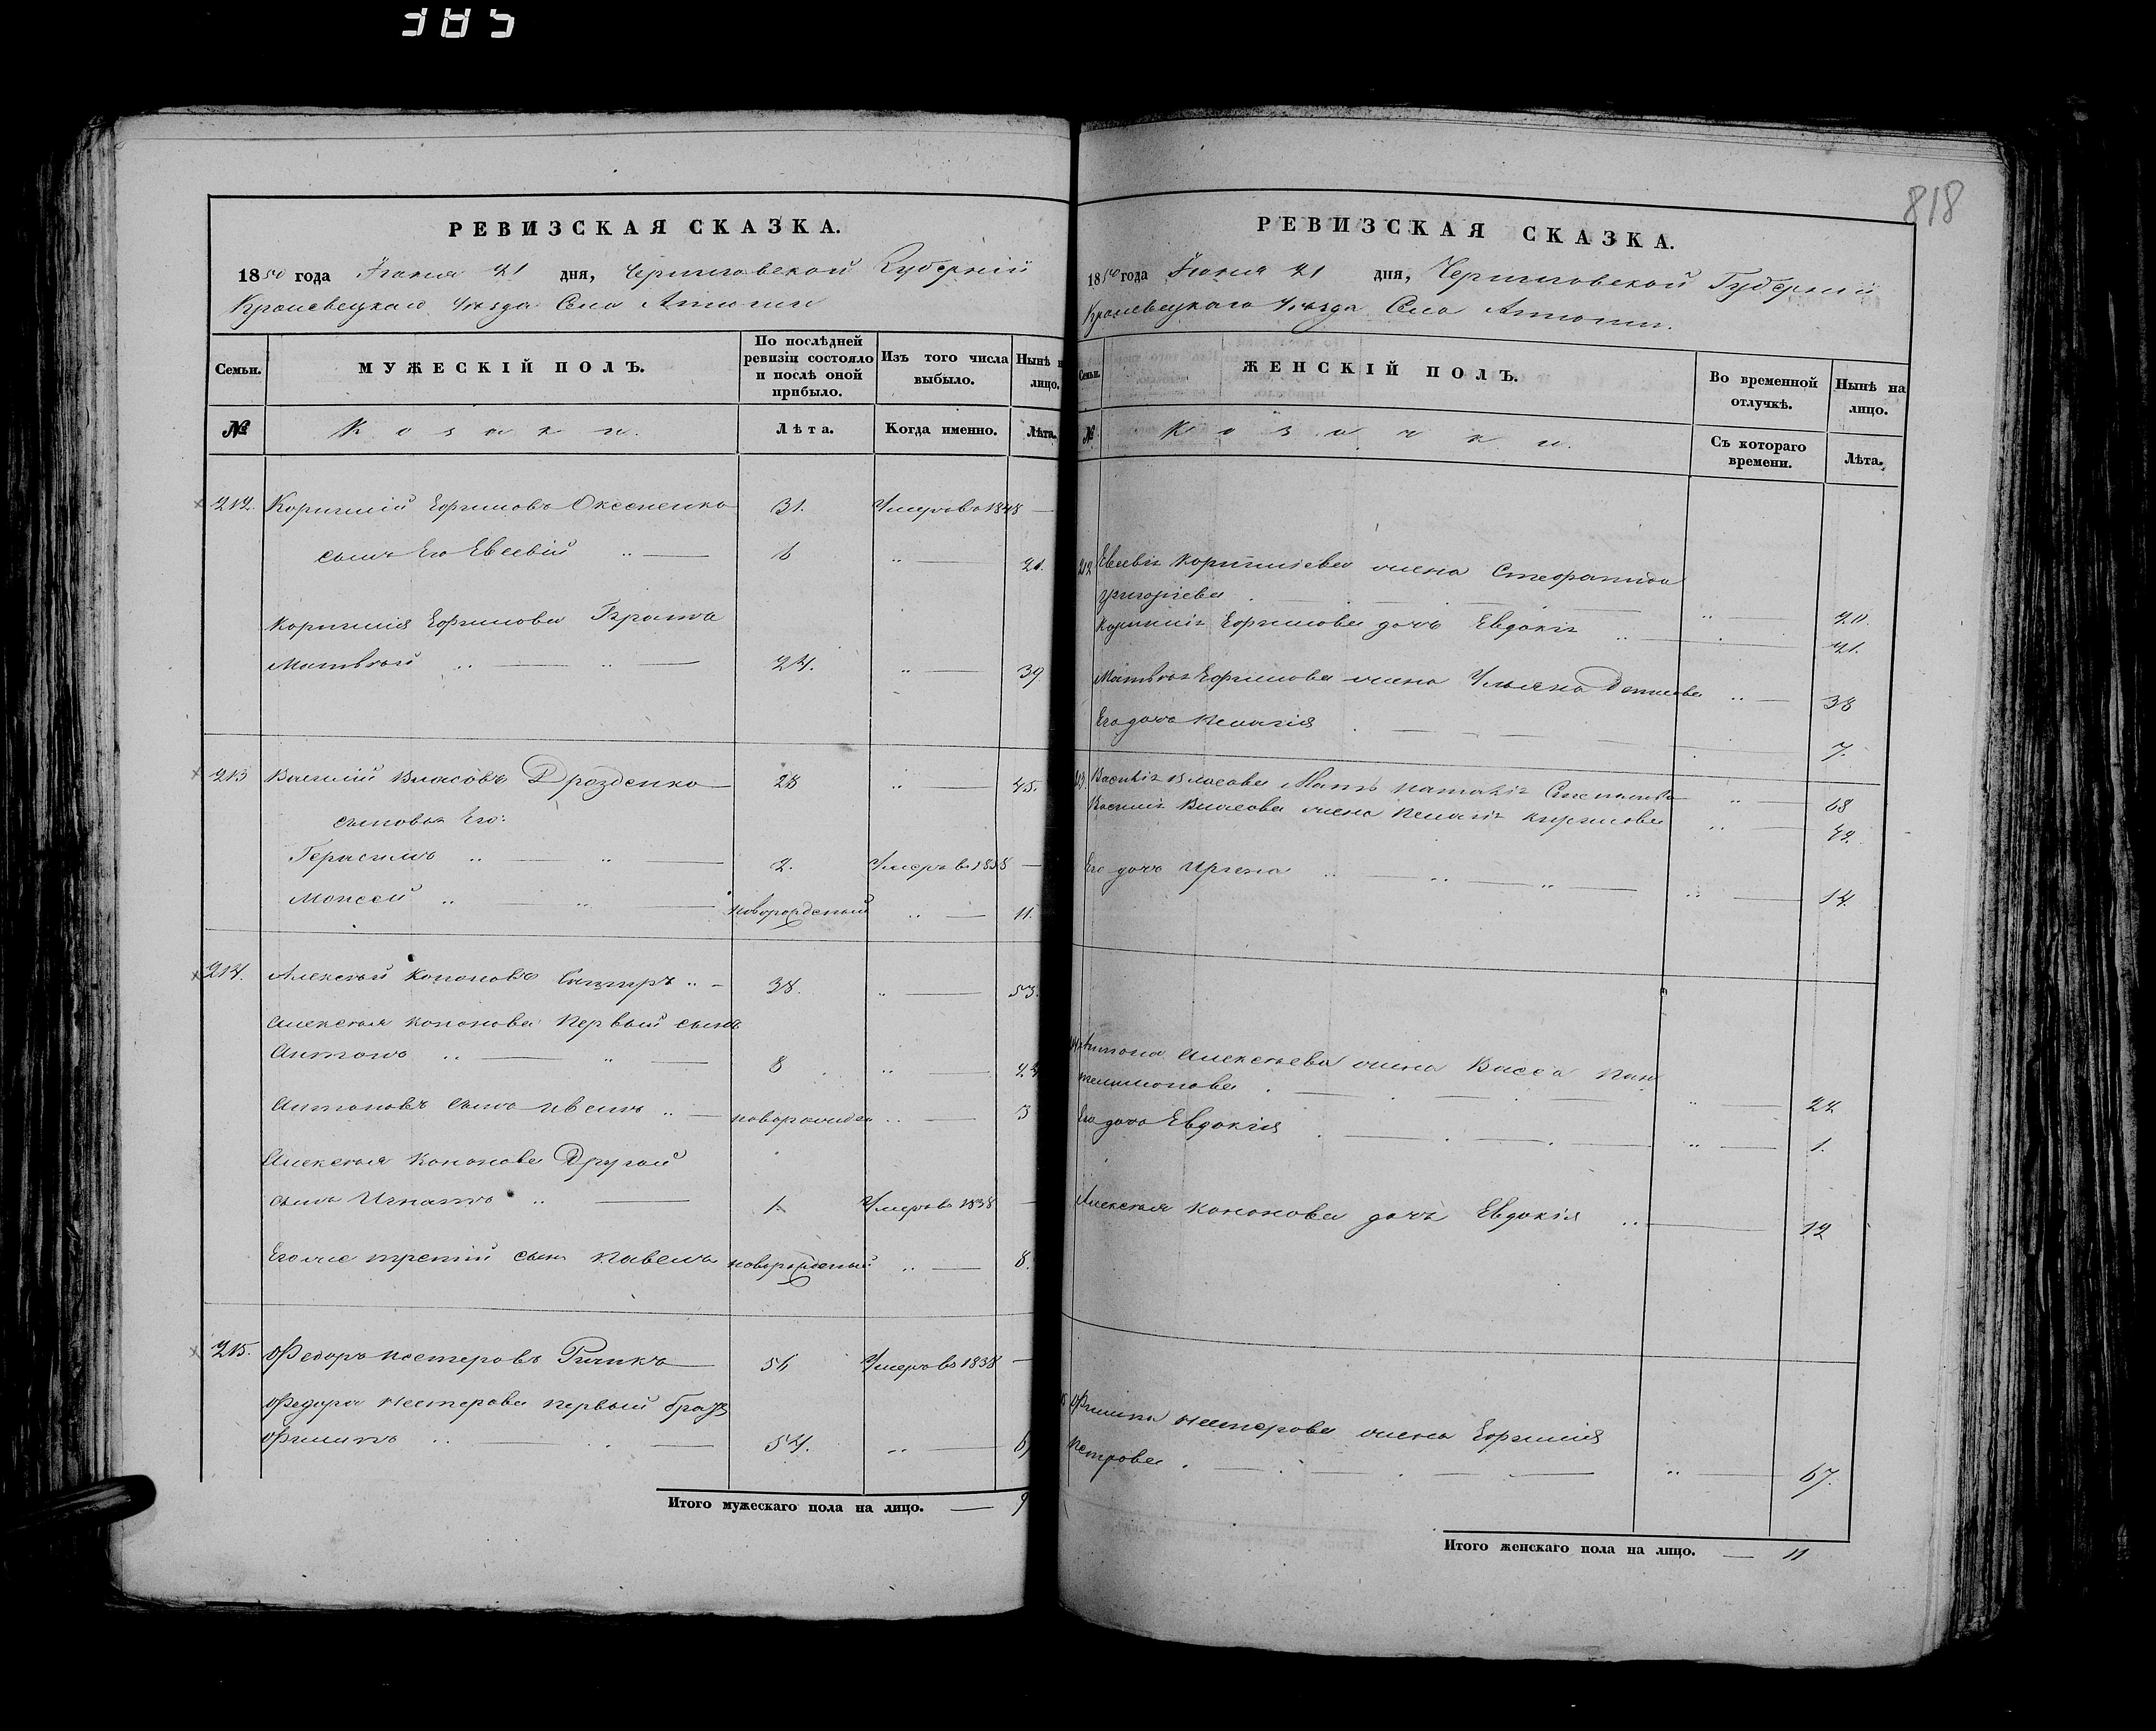 385
818
РЕВИЗСКАЯ СКАЗКА.
1850 года Іюня 21 дня, Черниговской Губерніи
Кролевецкаго уѣзда Село
Семьи. МУЖЕСКІЙ ПОЛЪ. По послѣдней ревизіи состояло и послѣ оной прибыло. Изъ того числа выбыло. Нынѣ н лицо.
№ Козаки. Лѣта. Когда именно. Лѣта.
212. Корнилій Ефимовъ Оксененко 31. Умеръ въ 1848 —
сынъ Его Евсевій 6 " — 21.
Корнилія Ефимова Братъ
Матвѣй " — " — 24. " — 39
213 Василій Власовъ Дрозденко 28 " — 45.
сыновья Его:
Герасимъ " — " — 2. Умеръ въ 1838 —
Моисей " — " — новорожденый " — 11.
214. Алексѣй Кононовъ " — 38. " — 53.
Алексѣя Кононова Первый сынъ
Антонъ " — " — 8 " —
Антоновъ сынъ Ивенъ " — новорожден " — 3
Алексѣя Кононова Другой
сынъ Игнатъ " — 1. Умеръ въ 1838 —
Его же третій сынъ Павелъ новорожденый " — 8.
215. Федоръ Нестеровъ 56 Умеръ въ 1838 —
Федора Нестерова первый братъ
Филипъ " — 54. " —
Итого мужескаго пола на лицо. — 9
РЕВИЗСКАЯ СКАЗКА.
1850 года Іюня 21 дня, Черниговской Губерніи
Кролевецкаго уѣзда Село
Семьи. ЖЕНСКІЙ ПОЛЪ. Во временной отлучкѣ. Нынѣ на лицо.
№ Козачки. Съ котораго времени. Лѣта.
212 Евсевія Корниліева жена Стефанида
Григорїева " — 20.
Корнилія Ефимова дочь Евдокія " — 21.
Матвѣя Ефимова жена Ульяна Денисова " — 38
Его дочь Пелагія 7.
213. Василія Власова Мать Наталія Степанова " 68
Василія Власова жена Пелагія Кирилова " — 42.
Его дочь Ирина " — " — " — 14.
Антона Алексѣева жена Васса Пан
телимонова " — 24
Его дочь Евдокія " — 1.
Алексѣя Кононова дочь Евдокія " — 12
Филипа Нестерова жена Ефимія
Петрова " — 67.
Итого женскаго пола на лицо. — 11